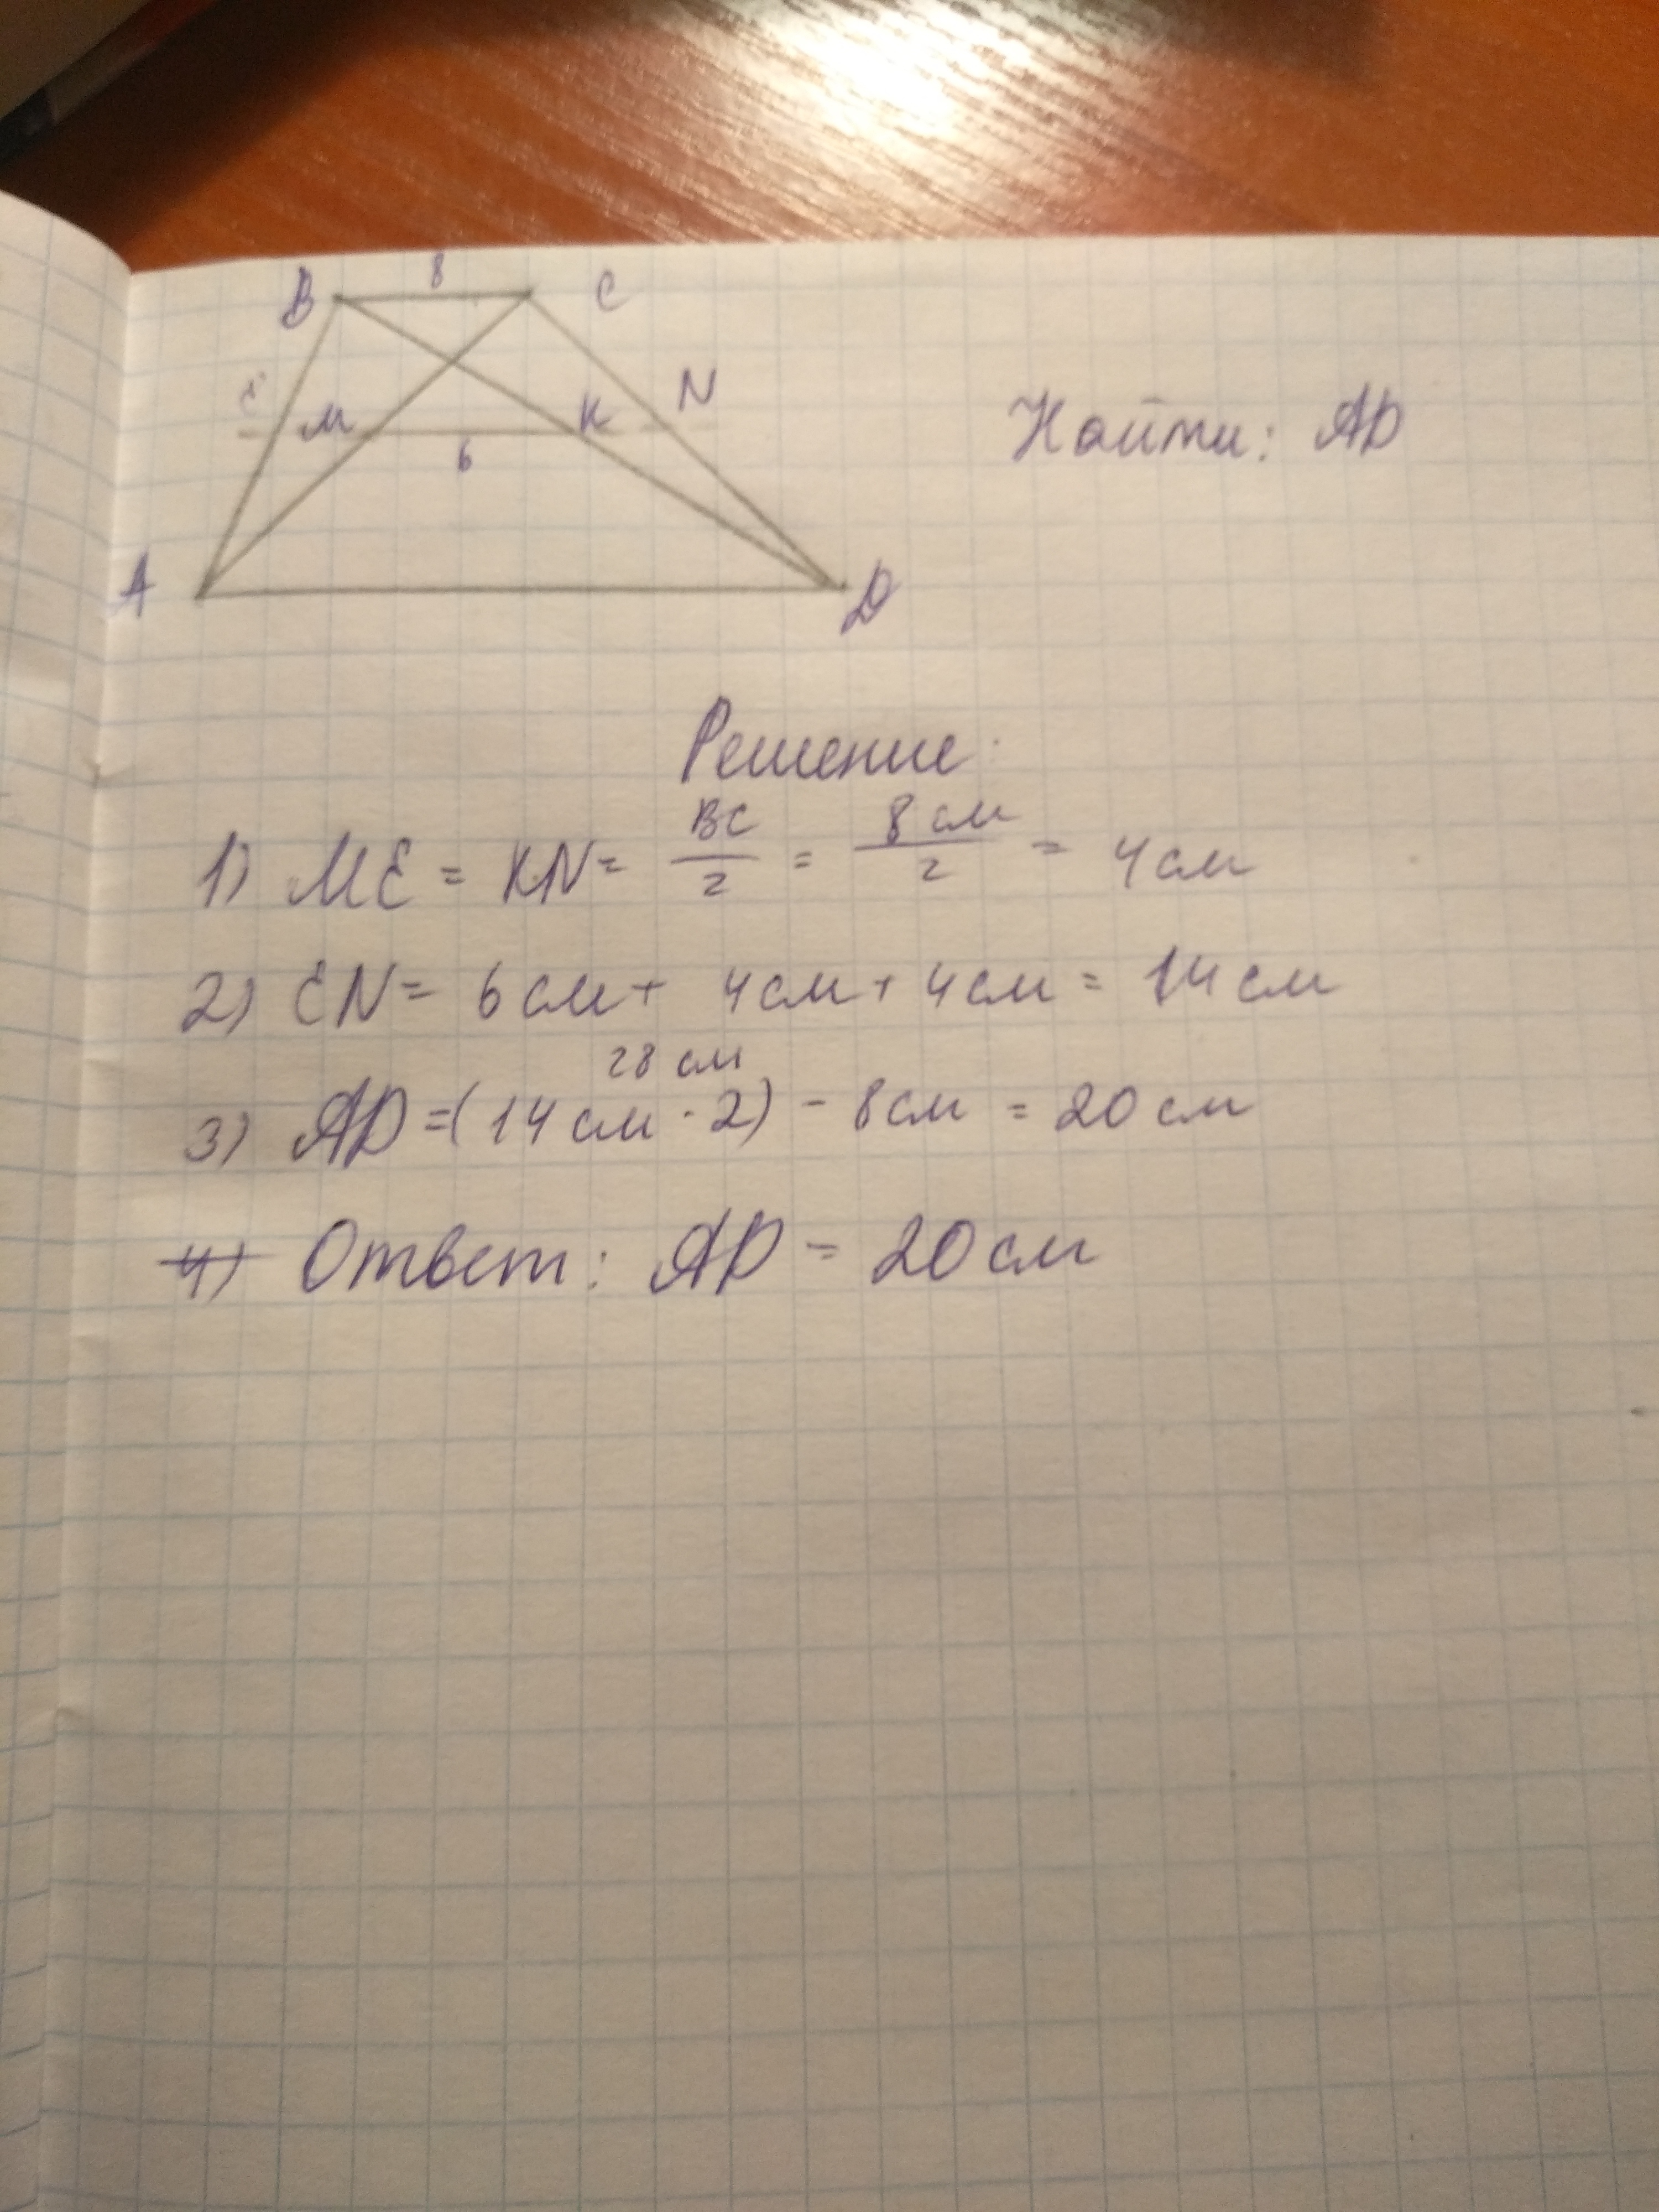 8
B C
E M K N
6
Найти: AD
A D
Решение:
1) ME = KN = BC/2 = 8 см/2 = 4 см
2) EN = 6 см + 4 см + 4 см = 14 см
28 см
3) AD = (14 см · 2) - 8 см = 20 см
4) Ответ: AD = 20 см